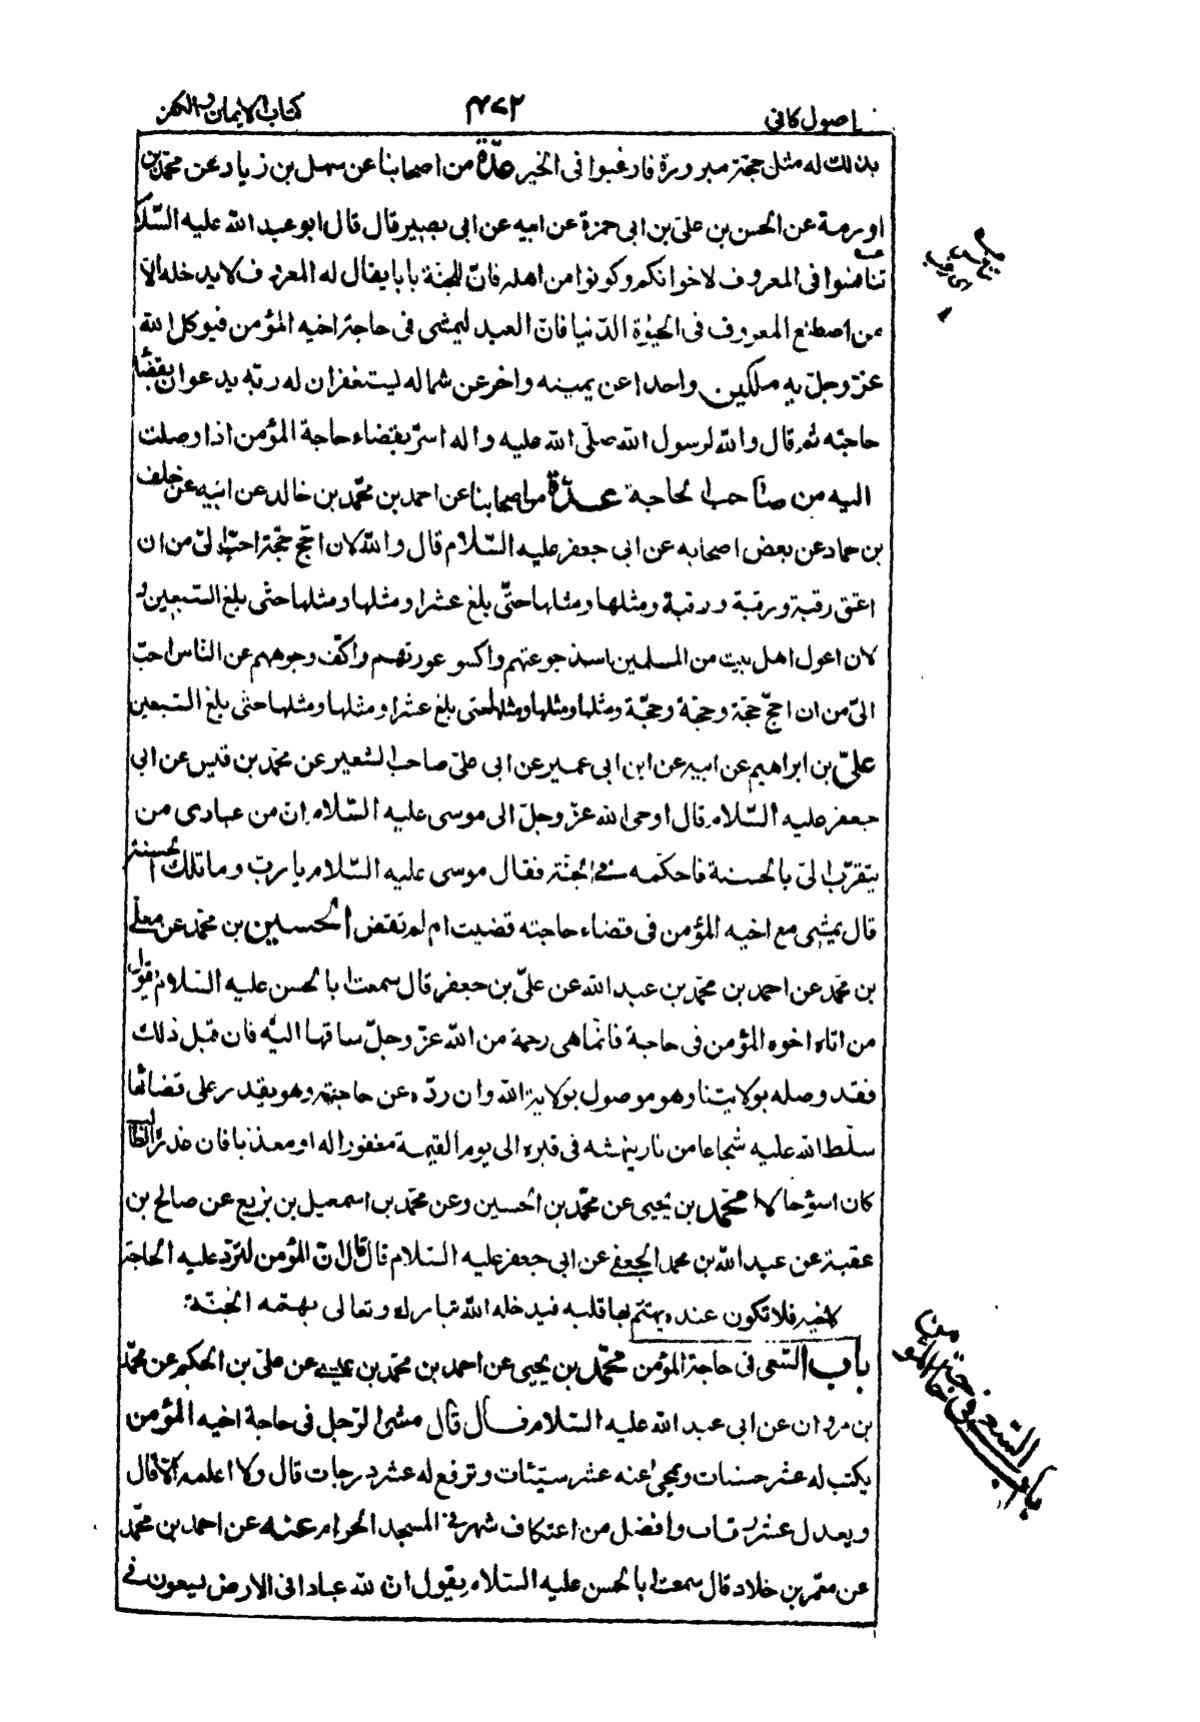 اصول کافی ٤٧٢ كتاب الايمان والكفر
بذلك له مثل حجة مبرورة فارغبوا فى الخير عدّة من اصحابنا عن سهل بن زياد عن محمّد بن
اورمة عن الحسن بن علىّ بن ابى حمزة عن ابيه عن ابى بصير قال قال ابو عبد الله عليه السّلام
تنافسوا فى المعروف لاخوانكم وكونوا من اهله فانّ للجنّة بابا يقال له المعروف لا يدخله الّا
من اصطنع المعروف فى الحيوة الدّنيا فانّ العبد ليمشى فى حاجة اخيه المؤمن فيوكل الله
عزّ وجلّ به ملكين واحدا عن يمينه واخر عن شماله ليستغفران له ربّه يدعوان بقضاء
حاجته ثم قال والله لرسول الله صلّى الله عليه واله اسرّ بقضاء حاجة المؤمن اذا وصلت
اليه من صاحب الحاجة عدّة من اصحابنا عن احمد بن محمّد بن خالد عن ابيه عن خلف
بن حماد عن بعض اصحابه عن ابى جعفر عليه السّلام قال والله لان احجّ حجّة احبّ الىّ من ان
اعتق رقبة ورقبة ورقبة ومثلها ومثلها حتّى بلغ عشرا ومثلها ومثلها حتّى بلغ السّبعين و
لان اعول اهل بيت من المسلمين اسدّ جوعتهم واكسو عورتهم واكفّ وجوههم عن النّاس احبّ
الىّ من ان احجّ حجّة وحجّة وحجّة ومثلها ومثلها ومثلها حتى بلغ عشرا ومثلها ومثلها حتّى بلغ السّبعين
علىّ بن ابراهيم عن ابيه عن ابن ابى عمير عن ابى علىّ صاحب الشعير عن محمّد بن قيس عن ابى
جعفر عليه السّلام قال اوحى الله عزّ وجلّ الى موسى عليه السّلام انّ من عبادى من
يتقرّب الىّ بالحسنة فاحكّمه فى الجنّة فقال موسى عليه السّلام يا ربّ وما تلك الحسنة
قال يمشى مع اخيه المؤمن فى قضاء حاجته قضيت ام لم تقض الحسين بن محمّد عن معلّى
بن محمّد عن احمد بن محمّد بن عبد الله عن علىّ بن جعفر قال سمعت ابا الحسن عليه السّلام يقول
من اتاه اخوه المؤمن فى حاجة فانّما هى رحمة من الله عزّ وجلّ ساقها اليه فان قبل ذلك
فقد وصله بولايتنا وهو موصول بولاية الله وان ردّه عن حاجته وهو يقدر على قضائها
سلّط الله عليه شجاعا من نار ينهشه فى قبره الى يوم القيمة مغفورا له او معذبا فان عذره الطّالب
كان اسوء حالا محمّد بن يحيى عن محمّد بن الحسين وعن محمّد بن اسمعيل بن بزيع عن صالح بن
عقبة عن عبد الله بن محمد الجعفى عن ابى جعفر عليه السّلام قال قال انّ المؤمن لتردّ عليه الحاجة
لاخيه فلا تكون عنده يهتمّ بها قلبه فيدخله الله تبارك وتعالى بهمّه الجنّة
باب السّعى فى حاجة المؤمن محمّد بن يحيى عن احمد بن محمّد بن عيسى عن علىّ بن الحكم عن محمّد
بن مروان عن ابى عبد الله عليه السّلام قال قال مشى الرّجل فى حاجة اخيه المؤمن
يكتب له عشر حسنات ويمحى عنه عشر سيّئات وترفع له عشر درجات قال ولا اعلمه الّا قال
ويعدل عشر رقاب وافضل من اعتكاف شهر فى المسجد الحرام عنه عن احمد بن محمّد
عن معمّر بن خلاد قال سمعت ابا الحسن عليه السّلام يقول انّ لله عبادا فى الارض يسعون فى
باب السّعى فى حاجة المؤمن